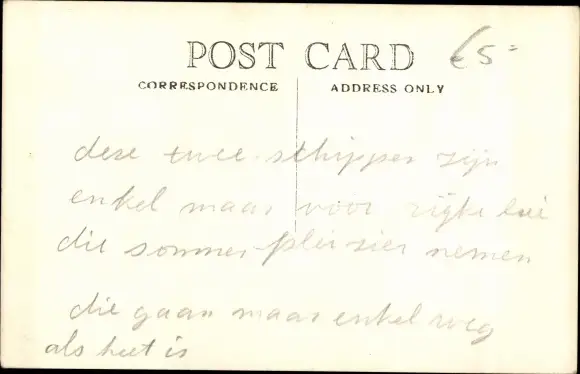 POST CARD €5=
CORRESPONDENCE ADDRESS ONLY
deze twee schippen zijn
enkel maar voor rijke lui
die sommer pleizier nemen
die gaan maar enkel weg
als heet is